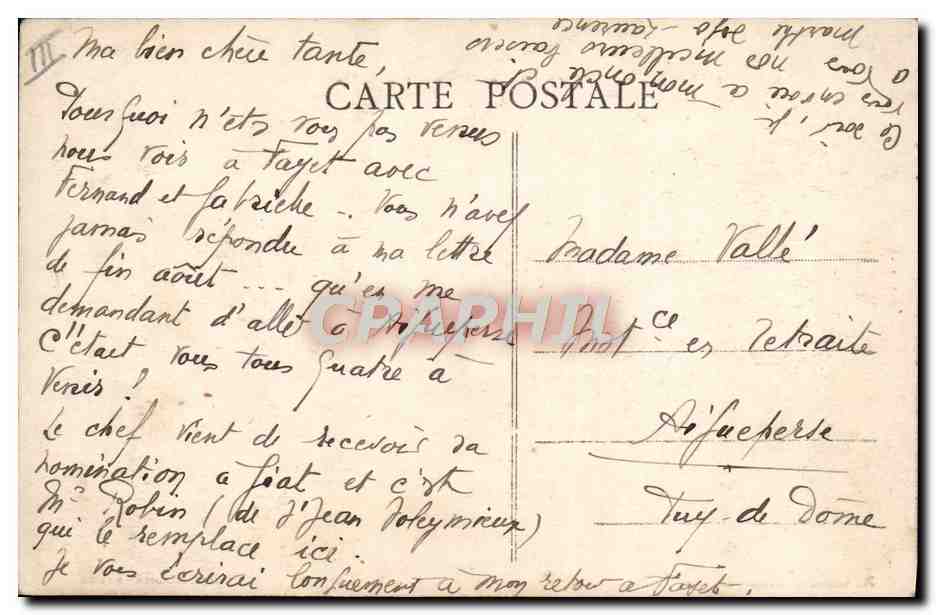 III
Ma bien chère tante,
Pourquoi n'etes vous pas venus
nous voir à Fayet avec
Fernand et Gabriche -. Vous n'avez
jamais répondu à ma lettre
de fin août ... qu'en me
demandant d'allé à Aigueperse
C'était vous tous quatre à
venir !
Le chef vient de recevoir sa
nomination à Giat et c'est
Mr Robin (de St Jean Soleymieux)
qui le remplace ici.
Je vous écrirai longuement à mon retour à Fayet.
Ce soir, je
vous envoie à mon oncle et
à vous nos meilleurs baisers
Marthe Jojo - Laurence
CARTE POSTALE
Madame Vallé
Instce en retraite
Aigueperse
Puy-de Dôme
CPAPHIL